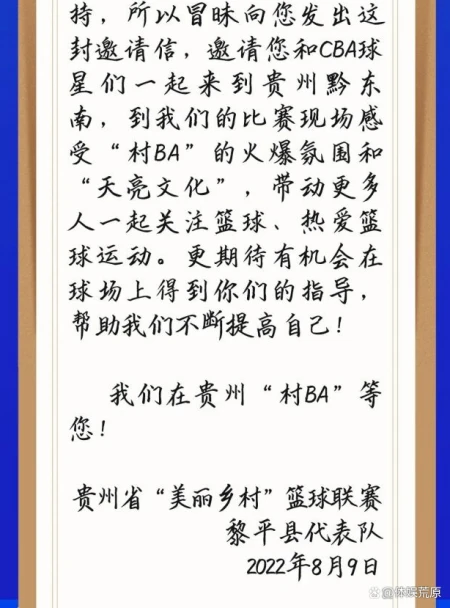 持，所以冒昧向您发出这
封邀请信，邀请您和CBA球
星们一起来到贵州黔东
南，到我们的比赛现场感
受“村BA”的火爆氛围和
“天亮文化”，带动更多
人一起关注篮球、热爱篮
球运动。更期待有机会在
球场上得到你们的指导，
帮助我们不断提高自己！
我们在贵州“村BA”等
您！
贵州省“美丽乡村”篮球联赛
黎平县代表队
2022年8月9日